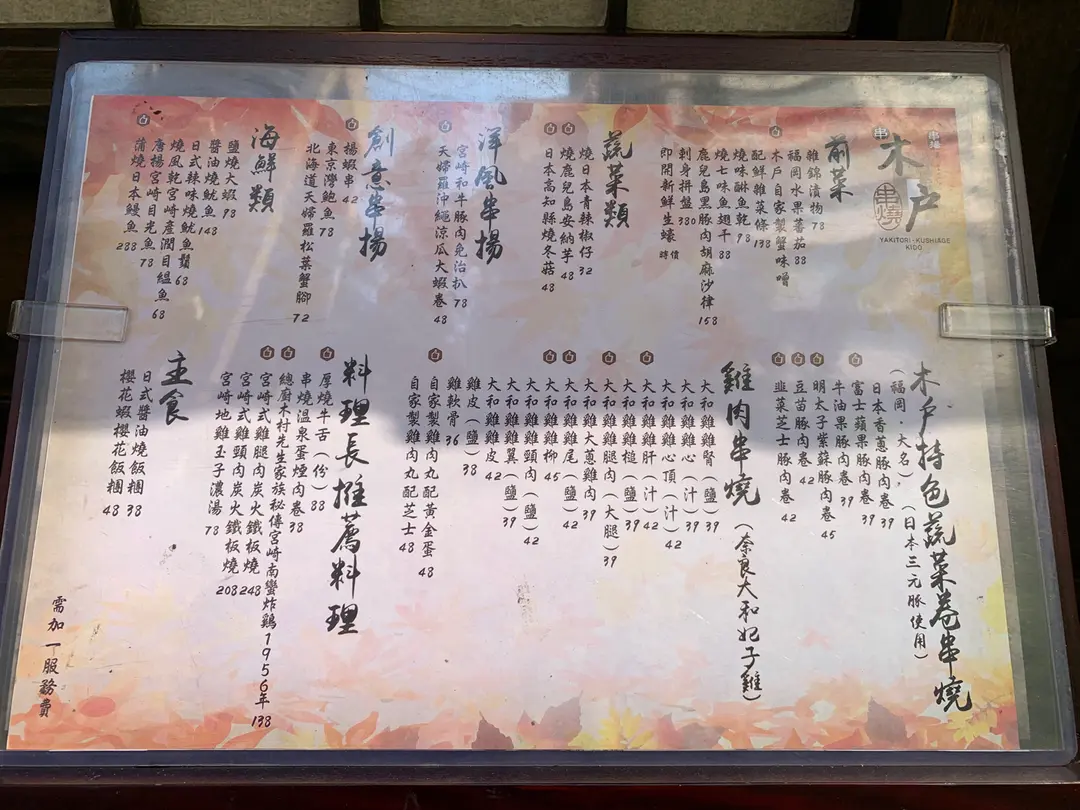 木戶
串燒
YAKITORI・KUSHIAGE
KIDO
前菜
雜錦漬物 78
福岡水果蕃茄 88
木戶自家製蟹味噌
配鮮雜菜條 138
燒味醂魚乾 98
燒七味魚翅干 88
鹿兒島黑豚肉胡麻沙律 158
刺身拼盤 380
即開新鮮生蠔 時價
蔬菜類
燒日本青辣椒仔 32
燒鹿兒島安納芋 48
日本高知縣燒冬菇 48
洋風串揚
宮崎和牛豚肉免治扒 78
天婦羅沖繩涼瓜大蝦卷 48
創意串揚
揚蝦串 42
東京灣鮑魚 78
北海道天婦羅松葉蟹腳 72
海鮮類
鹽燒大蝦 98
醬油燒魷魚 148
日式辣味燒魷魚鬚 68
燒風乾宮崎產潤目鰮魚 68
唐揚宮崎目光魚 78
蒲燒日本鰻魚 288
木戶特色蔬菜卷串燒
(福岡・大名,(日本三元豚使用)
日本香蔥豚肉卷 39
富士蘋果豚肉卷 39
牛油果豚肉卷 39
明太子紫蘇豚肉卷 45
豆苗豚肉卷 42
韮菜芝士豚肉卷 42
雞肉串燒(奈良大和妃子雞)
大和雞雞腎(鹽)39
大和雞雞心(汁)39
大和雞雞心頂(汁)42
大和雞雞肝(汁)42
大和雞雞槌(鹽)39
大和雞雞腿肉(大腿)39
大和雞大蔥雞肉 39
大和雞雞尾(鹽)42
大和雞雞柳 45
大和雞雞頸肉(鹽)42
大和雞雞翼(鹽)39
大和雞雞皮 42
雞皮(鹽)38
雞軟骨 36
自家製雞肉丸配黃金蛋 48
自家製雞肉丸配芝士 48
料理長推薦料理
厚燒牛舌(份)88
串燒溫泉蛋煙肉卷 38
總廚木村先生家族秘傳宮崎南蠻炸鷄1956年 138
宮崎式雞腿肉炭火鐵板燒 248
宮崎式雞頸肉炭火鐵板燒 208
宮崎地雞玉子濃湯 78
主食
日式醬油燒飯糰 38
櫻花蝦櫻花飯糰 48
需加一服務費